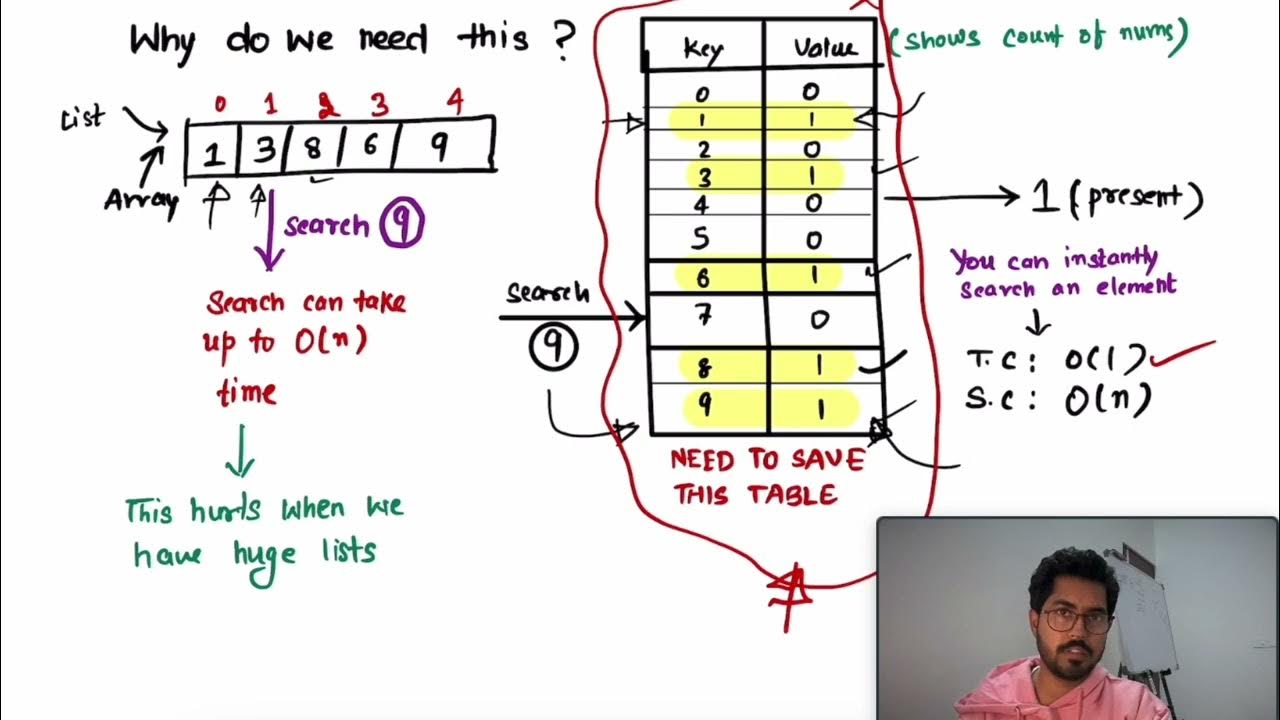 Why do we need this ?
List
0 1 2 3 4
1 3 8 6 9
Array
search 9
Search can take
up to O(n)
time
This hurts when we
have huge lists
search
9
Key Value
0 0
1 1
2 0
3 1
4 0
5 0
6 1
7 0
8 1
9 1
NEED TO SAVE
THIS TABLE
(shows count of nums)
1 (present)
You can instantly
search an element
T.C: O(1)
S.C: O(n)